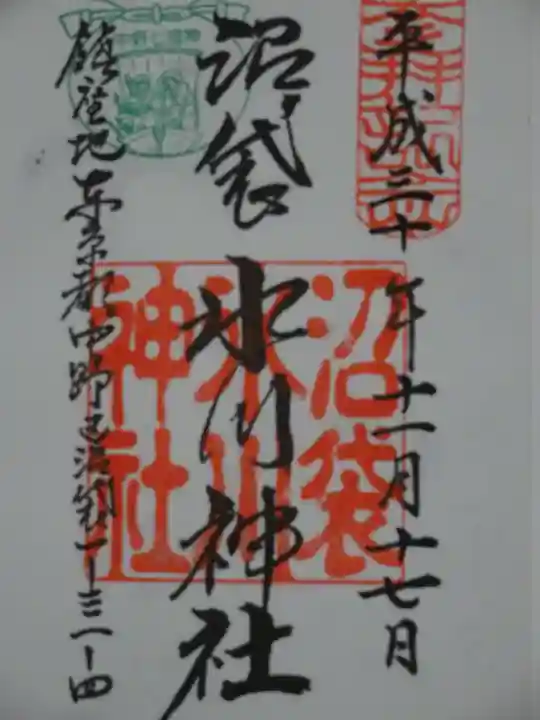 平成三十年十一月十七日
沼袋氷川神社
鎮座地東京都中野区沼袋一ー三一ー四
沼袋
氷川
神社